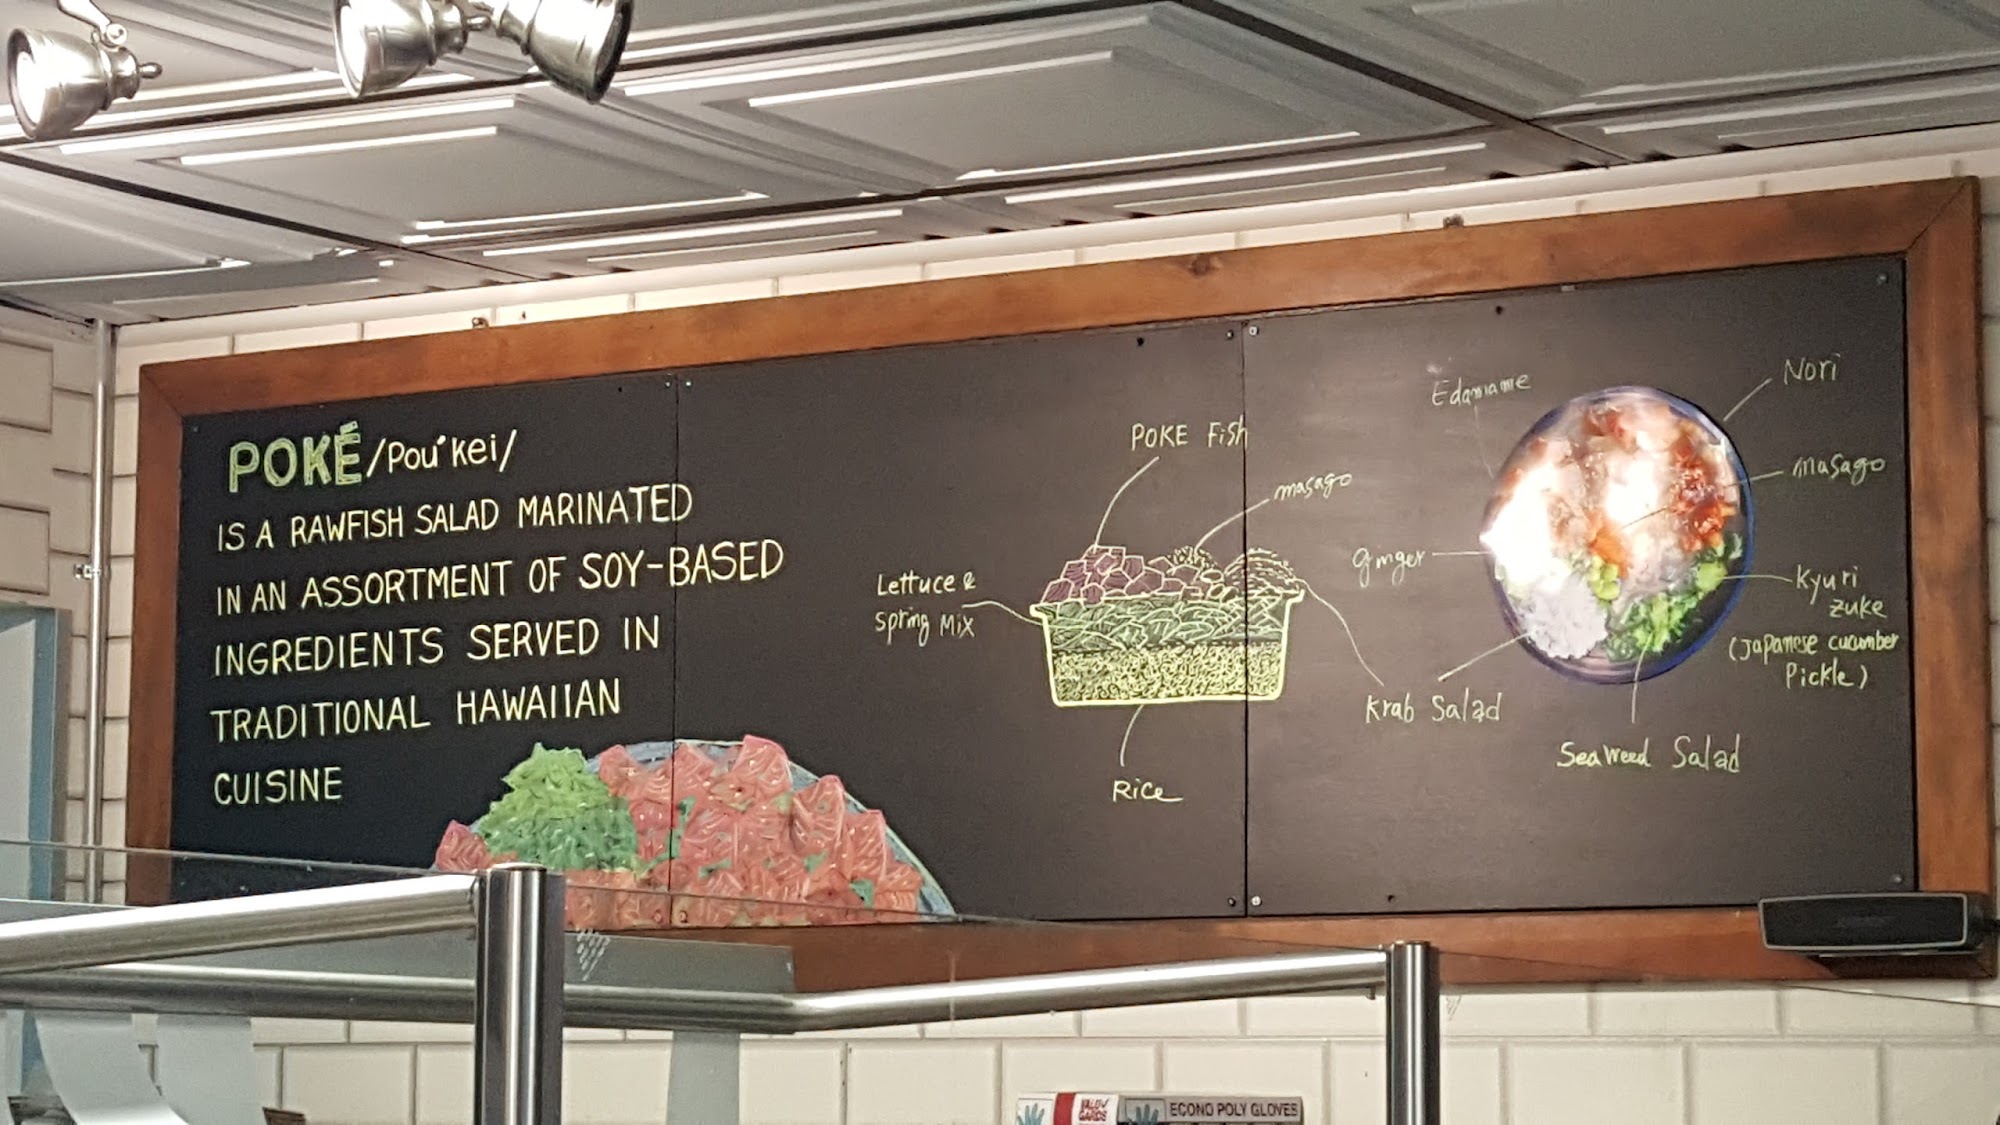 POKÉ /Pou'kei/
IS A RAWFISH SALAD MARINATED
IN AN ASSORTMENT OF SOY-BASED
INGREDIENTS SERVED IN
TRADITIONAL HAWAIIAN
CUISINE
POKE Fish
masago
Lettuce &
Spring Mix
Krab Salad
Rice
Edamame
Nori
masago
ginger
Kyuri
zuke
(Japanese cucumber
Pickle)
Seaweed Salad
ECONO POLY GLOVES